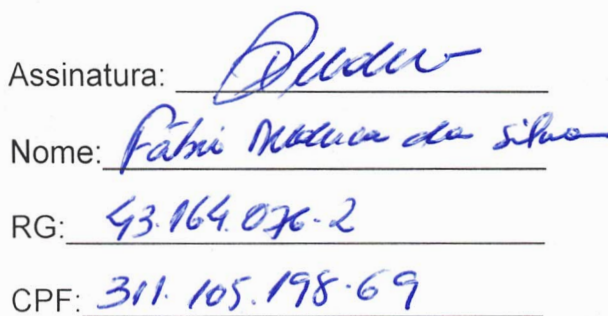 Assinatura:
Nome: Fábio da Silva
RG: 43.164.076-2
CPF: 311.105.198-69